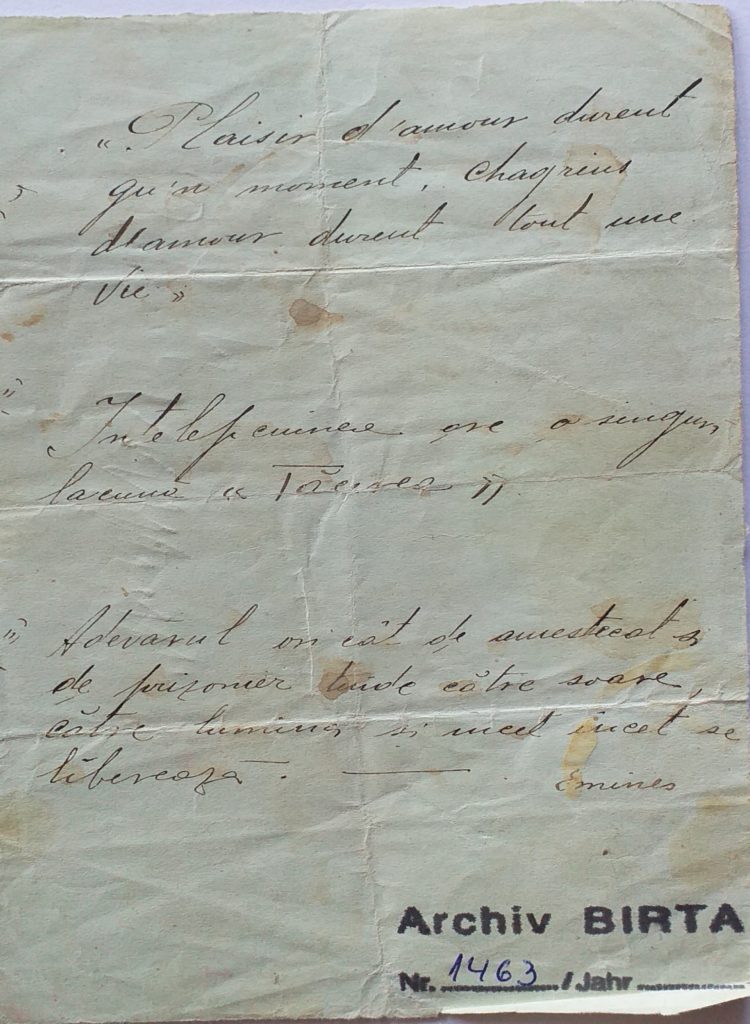 « Plaisir d'amour durent
qu'n moment, chagrins
d'amour durent tout une
vie »
Intelepciunea are o singur
lacună « Tăcerea »
Adevărul ori cât de amestecat și
de prizonier tinde către soare,
către lumina și incet încet se
liberează. —
Emines
Archiv BIRTA
Nr. 1463 / Jahr